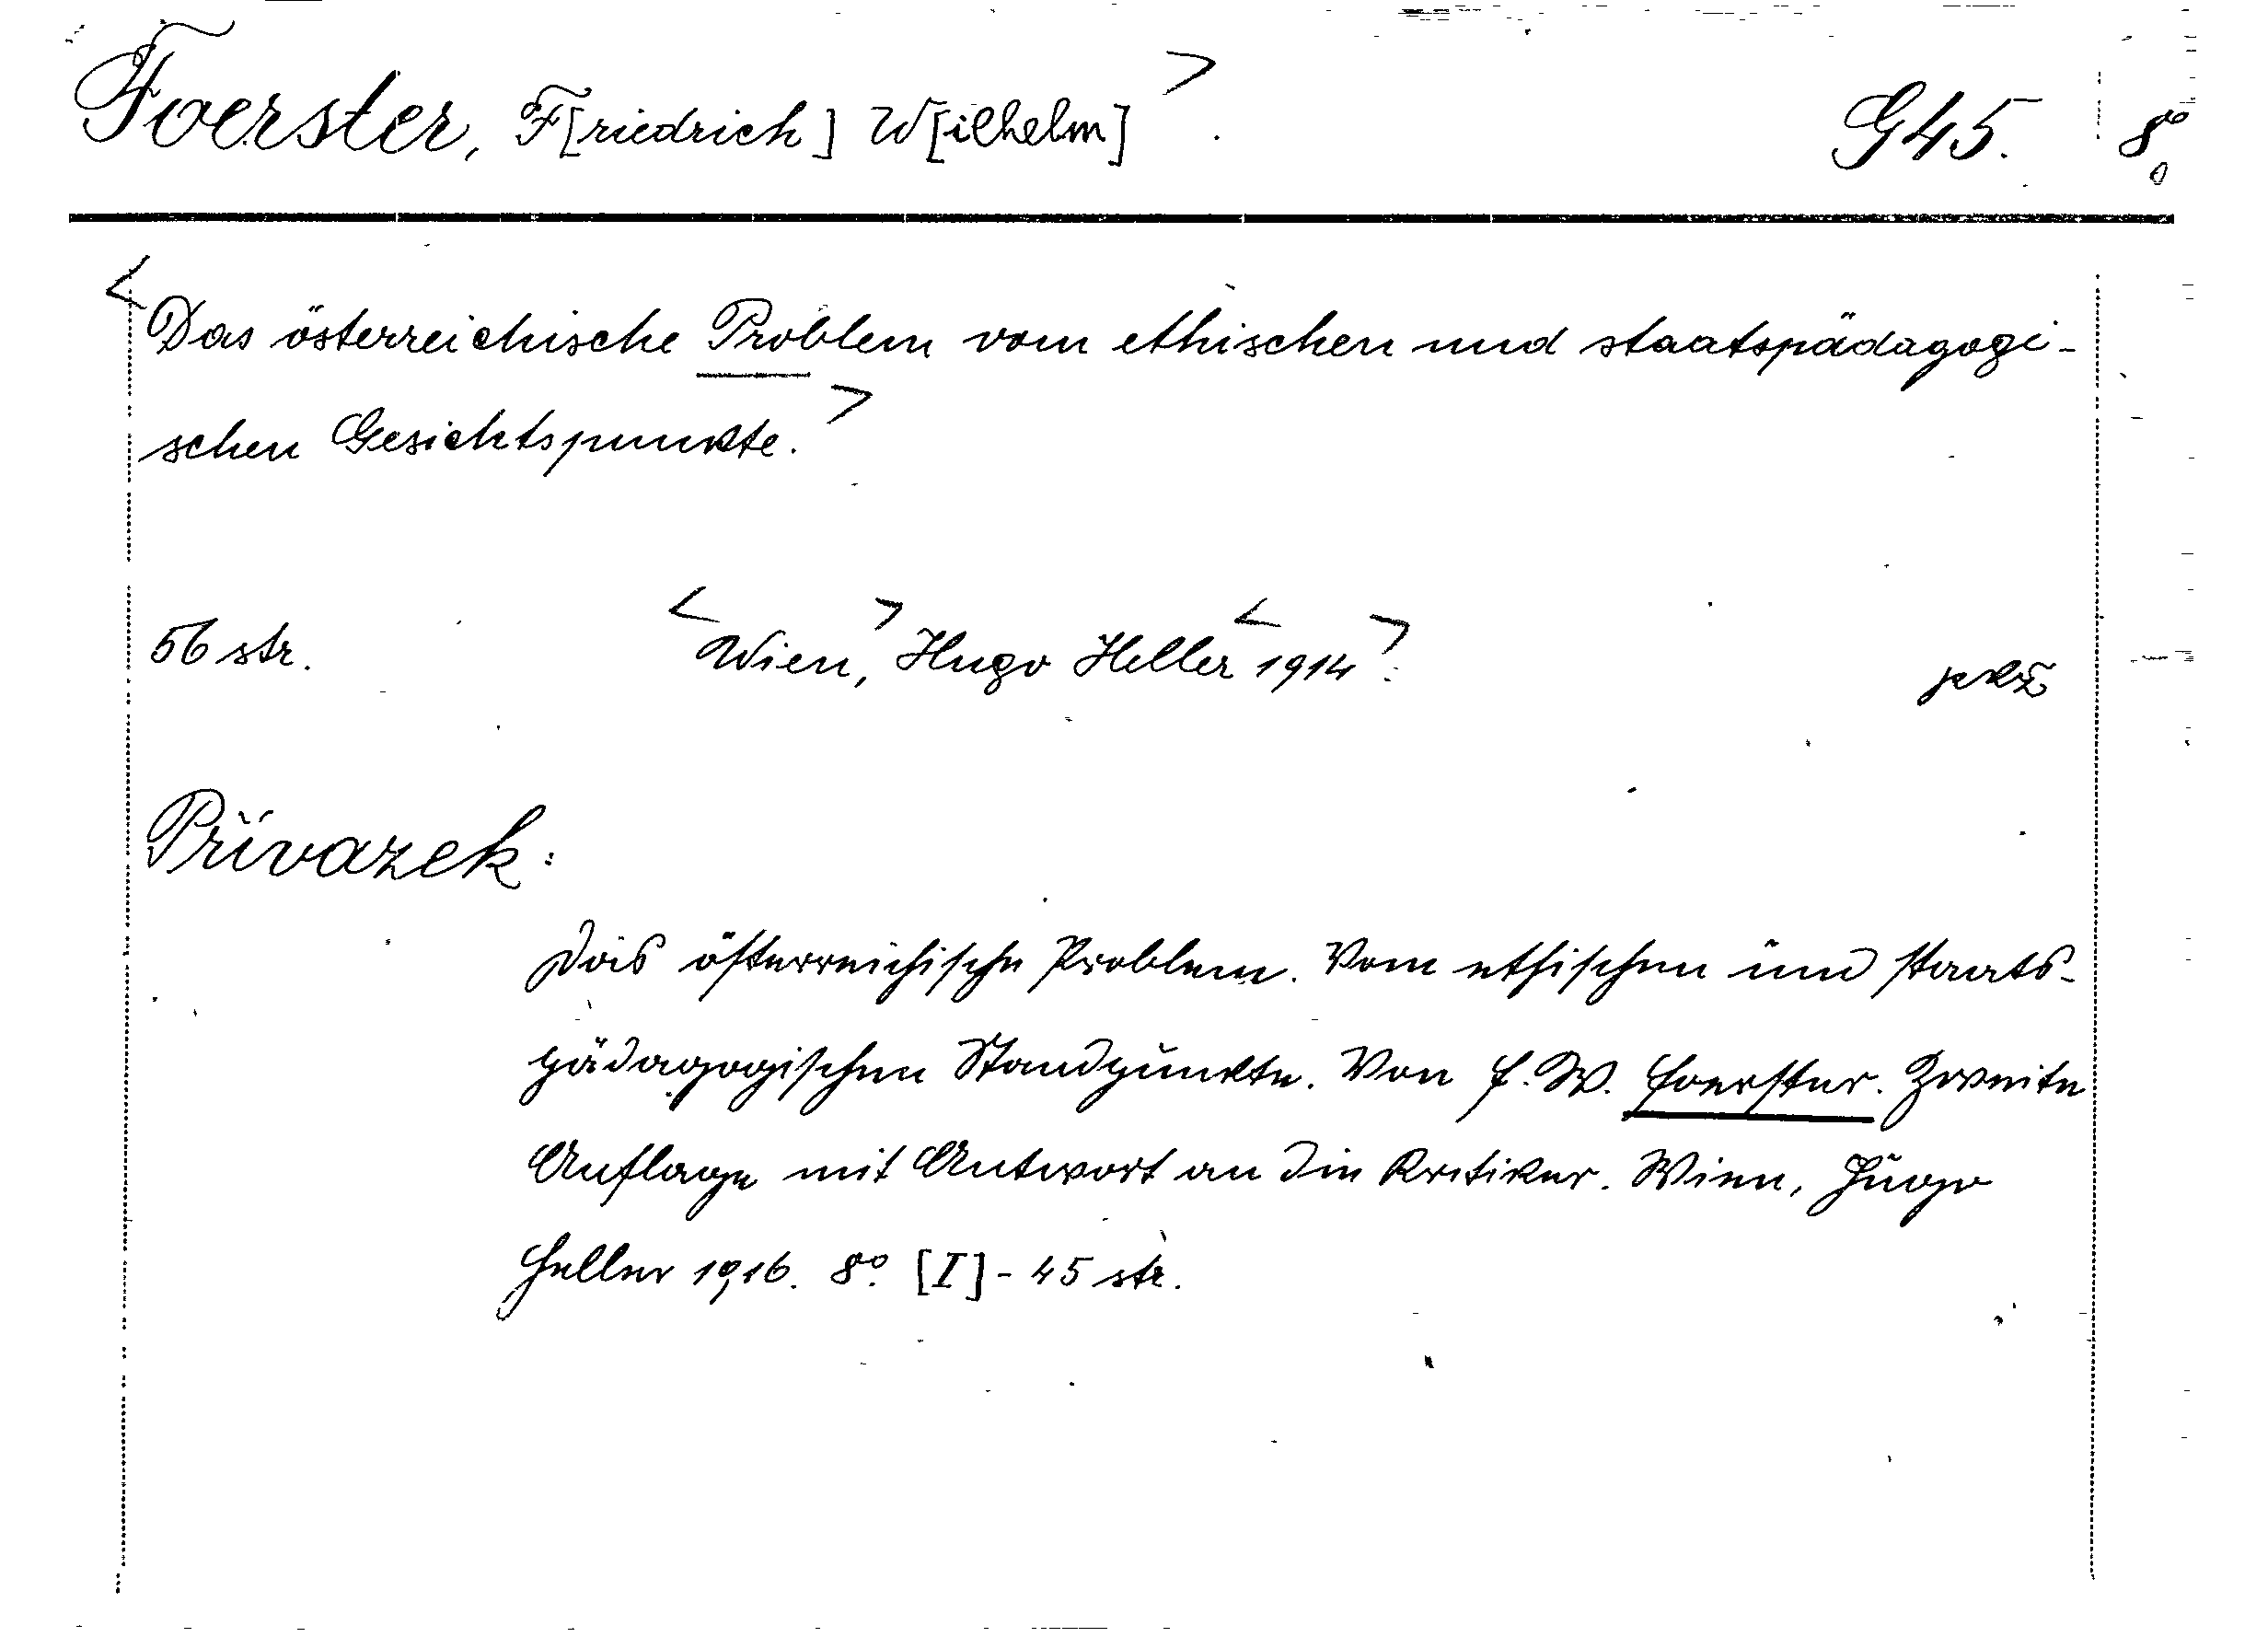 Foerster, F[riedrich] W[ilhelm]> . G45. 8°
<Das österreichische Problem vom ethischen und staatspädagogi-
schen Gesichtspunkte.>
56 str. <Wien,> Hugo Heller <1914>.
Přívazek:
Das österreichische Problem. Vom ethischen und staats-
pädagogischen Standpunkte. Von F. W. Foerster. Zweite
Auflage mit Antwort an die Kritiker. Wien, Hugo
Heller 1916. 8°. [I] - 45 str.